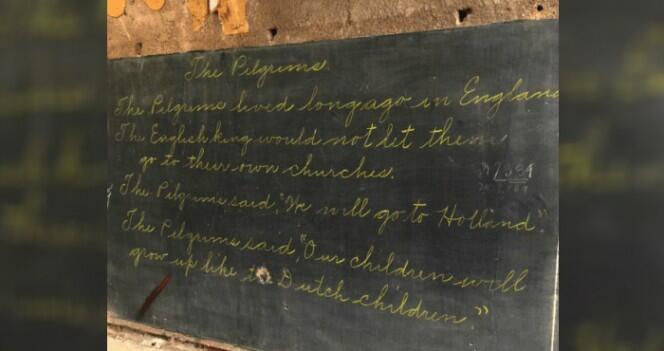 The Pilgrims.
The Pilgrims lived long ago in England
The English king would not let them
go to their own churches.
The Pilgrims said, "We will go to Holland."
The Pilgrims said, "Our children will
grow up like the Dutch children."